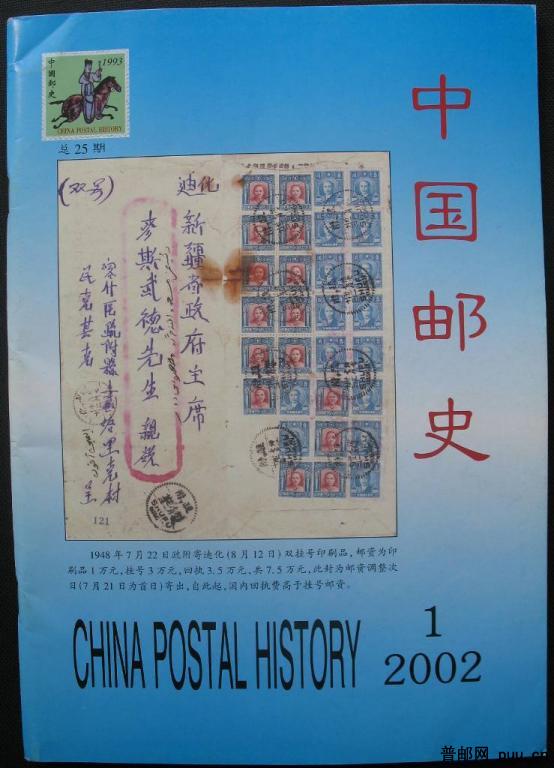 1993
中國郵史
CHINA POSTAL HISTORY
总 25 期
中国邮史
(双号)
迪化
新疆省政府主席
麦斯武德先生 親啟
民克甚克
121
1948年7月22日疏附寄迪化(8月12日)双挂号印刷品,邮资为印
刷品1万元,挂号3万元,回执3.5万元,共7.5万元,此封为邮资调整次
日(7月21日为首日)寄出,自此起,国内回执费高于挂号邮资。
CHINA POSTAL HISTORY
1
2002
普邮网 puu.cn